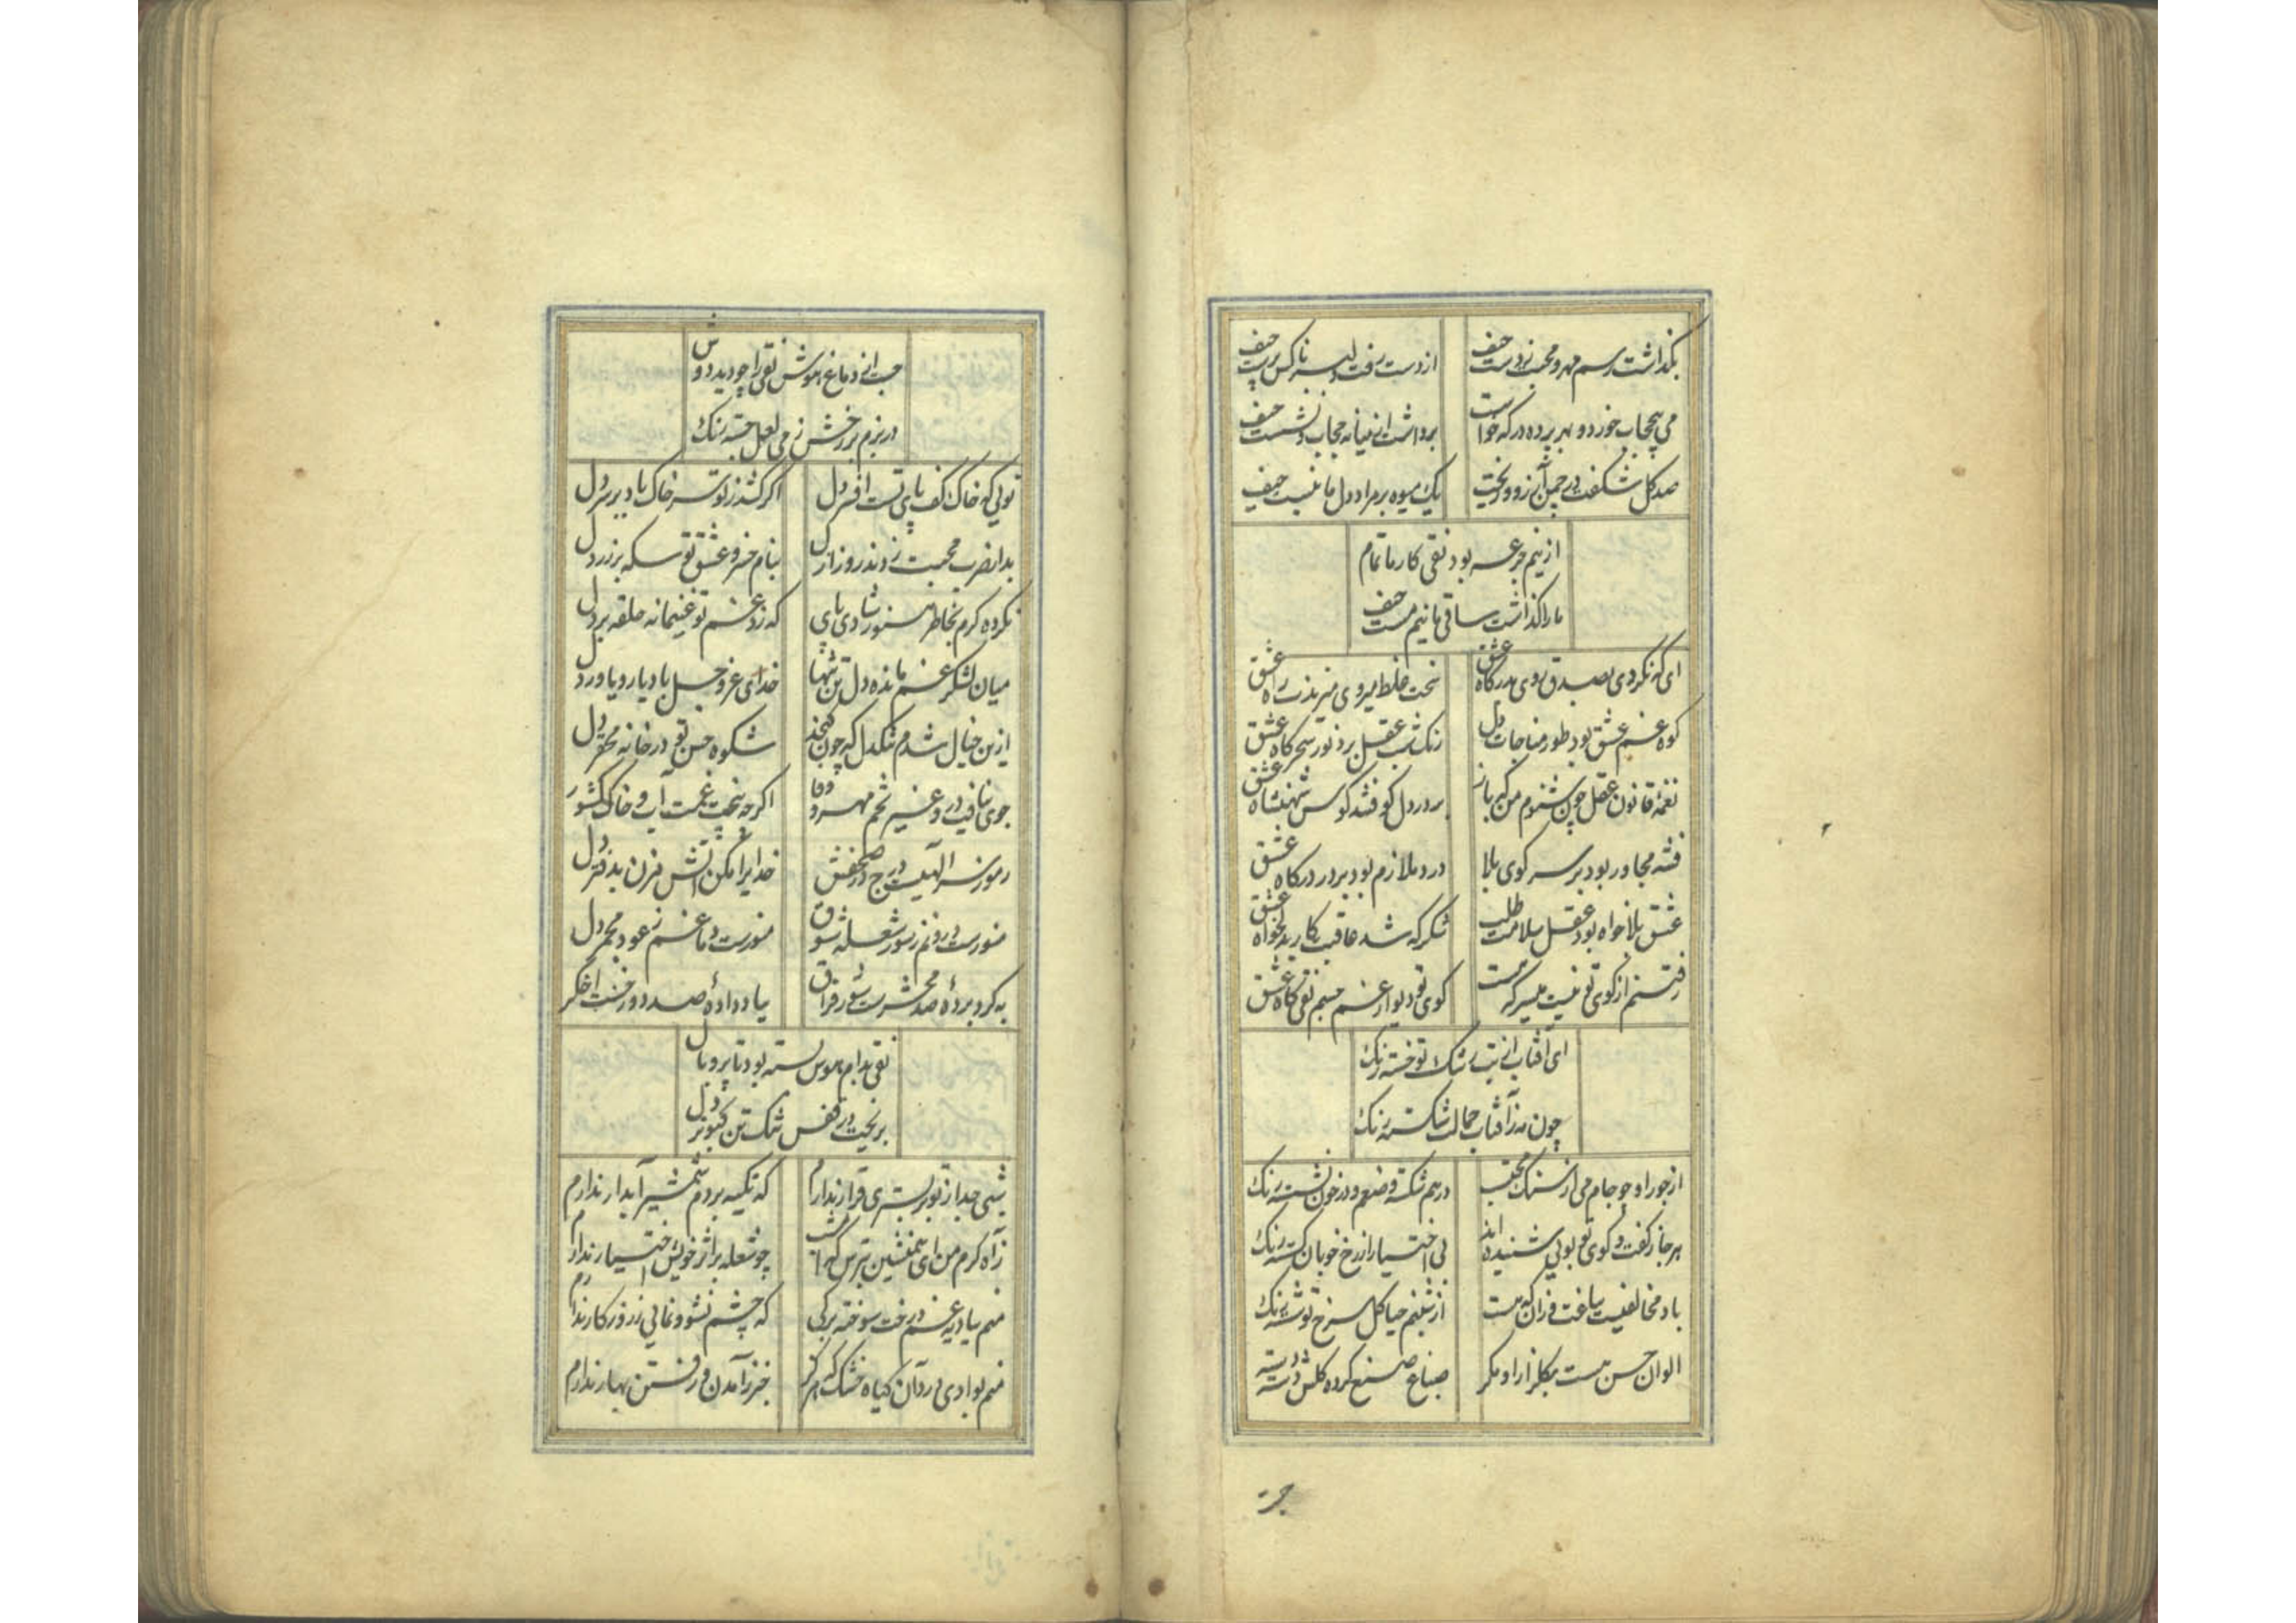 بگذاشت رسم مهر و محبت ز دست حیف
از دست رفت و دلبر ناکس پرست حیف
می بیحجاب خورد و بهر پرده در که خواست
برداشت از میانه حجاب و نشست حیف
صد گل شکفت در چمن آرزو و ریخت
یک میوه بر مراد دل ما نبست حیف
از نیم جرعه بود نقی کار ما تمام
ما را گذاشت ساقی ما نیم مست حیف
ای که نکردی بصدق روی بدرگاه عشق
سخت غلط میروی میر بذر راه عشق
کوه غم عشق بود طور مناجات دل
زنگ شب عقل برد نور سحرگاه عشق
نغمهٔ قانون عقل چون شنوم من که باز
بر در دل کوفتند کوس شهنشاه عشق
فتنه مجاور بود بر سر کوی بلا
درد ملازم بود بر در درگاه عشق
عشق بلا خواه بود عقل سلامت طلب
شکر که شد عاقبت کار بدلخواه عشق
رفتنم از کوی تو نیست میسر که هست
کوی تو دیوار غم جسم نقی کاه عشق
ای آفتاب از تب رشک تو خسته رنگ
چون مه ز آفتاب جمالت شکسته رنگ
از جور او چو جام می از سنگ محتسب
درهم شکسته وضعم و در خون نشسته رنگ
هر جا ز گفت و گوی تو بویی شنیده‌اند
بی اختیار از رخ خوبان گسسته رنگ
باد مخالفیست بباغت وزان که هست
از شبنم حیا گل سرخ تو شسته رنگ
الوان حسن هست بگلزار او مگر
صباغ صنع کرده گلش دسته دسته رنگ
جست
جست از دماغ هوش نقی را چو دید دوش
در بزم بر رخش ز می لعل جسته رنگ
تویی که خاک کف پای تست افسر دل
اگر کشد ز تو سر خاک باد بر سر دل
بدار ضرب محبت زدند روز ازل
بنام خسرو عشق تو سکه بر زر دل
نکرده گرم بخاطر هنوز شادی پای
که زد غم تو غنیمانه حلقه بر در دل
میان لشکر غم مانده دل تن تنها
خدای عز و جل باد یار و یاور دل
ازین خیال شدم تنگدل که چون گنجد
شکوه حسن تو در خانهٔ محقر دل
جوی نیافت درو غیر تخم مهر و وفا
اگرچه بیخت غمت آب و خاک کشور دل
رموز سر الهیست درج در صحفش
خدایرا مکن آتش مزن بدفتر دل
منورست درونم ز سوز شعلهٔ شوق
معطرست دماغم ز عود مجمر دل
به گرو بردهٔ صد محشرست شور فراق
بیاد دادهٔ صد دوزخست اخگر دل
نقی بدام هوس بسته بود تا پر و بال
بریخت در قفس تنگ تن کبوتر دل
شبی جدا ز تو بر بستری قرار ندارم
که تکیه بر دم شمشیر آبدار ندارم
ز آه گرم من ای همنشین بترس که امشب
چو شعله بر اثر خویش اختیار ندارم
منم ببادیهٔ غم درخت سوخته برگی
که چشم نشو و نمایی ز روزگار ندارم
منم بوادی درد آن گیاه خشک که هرگز
خبر ز آمدن و رفتن بهار ندارم